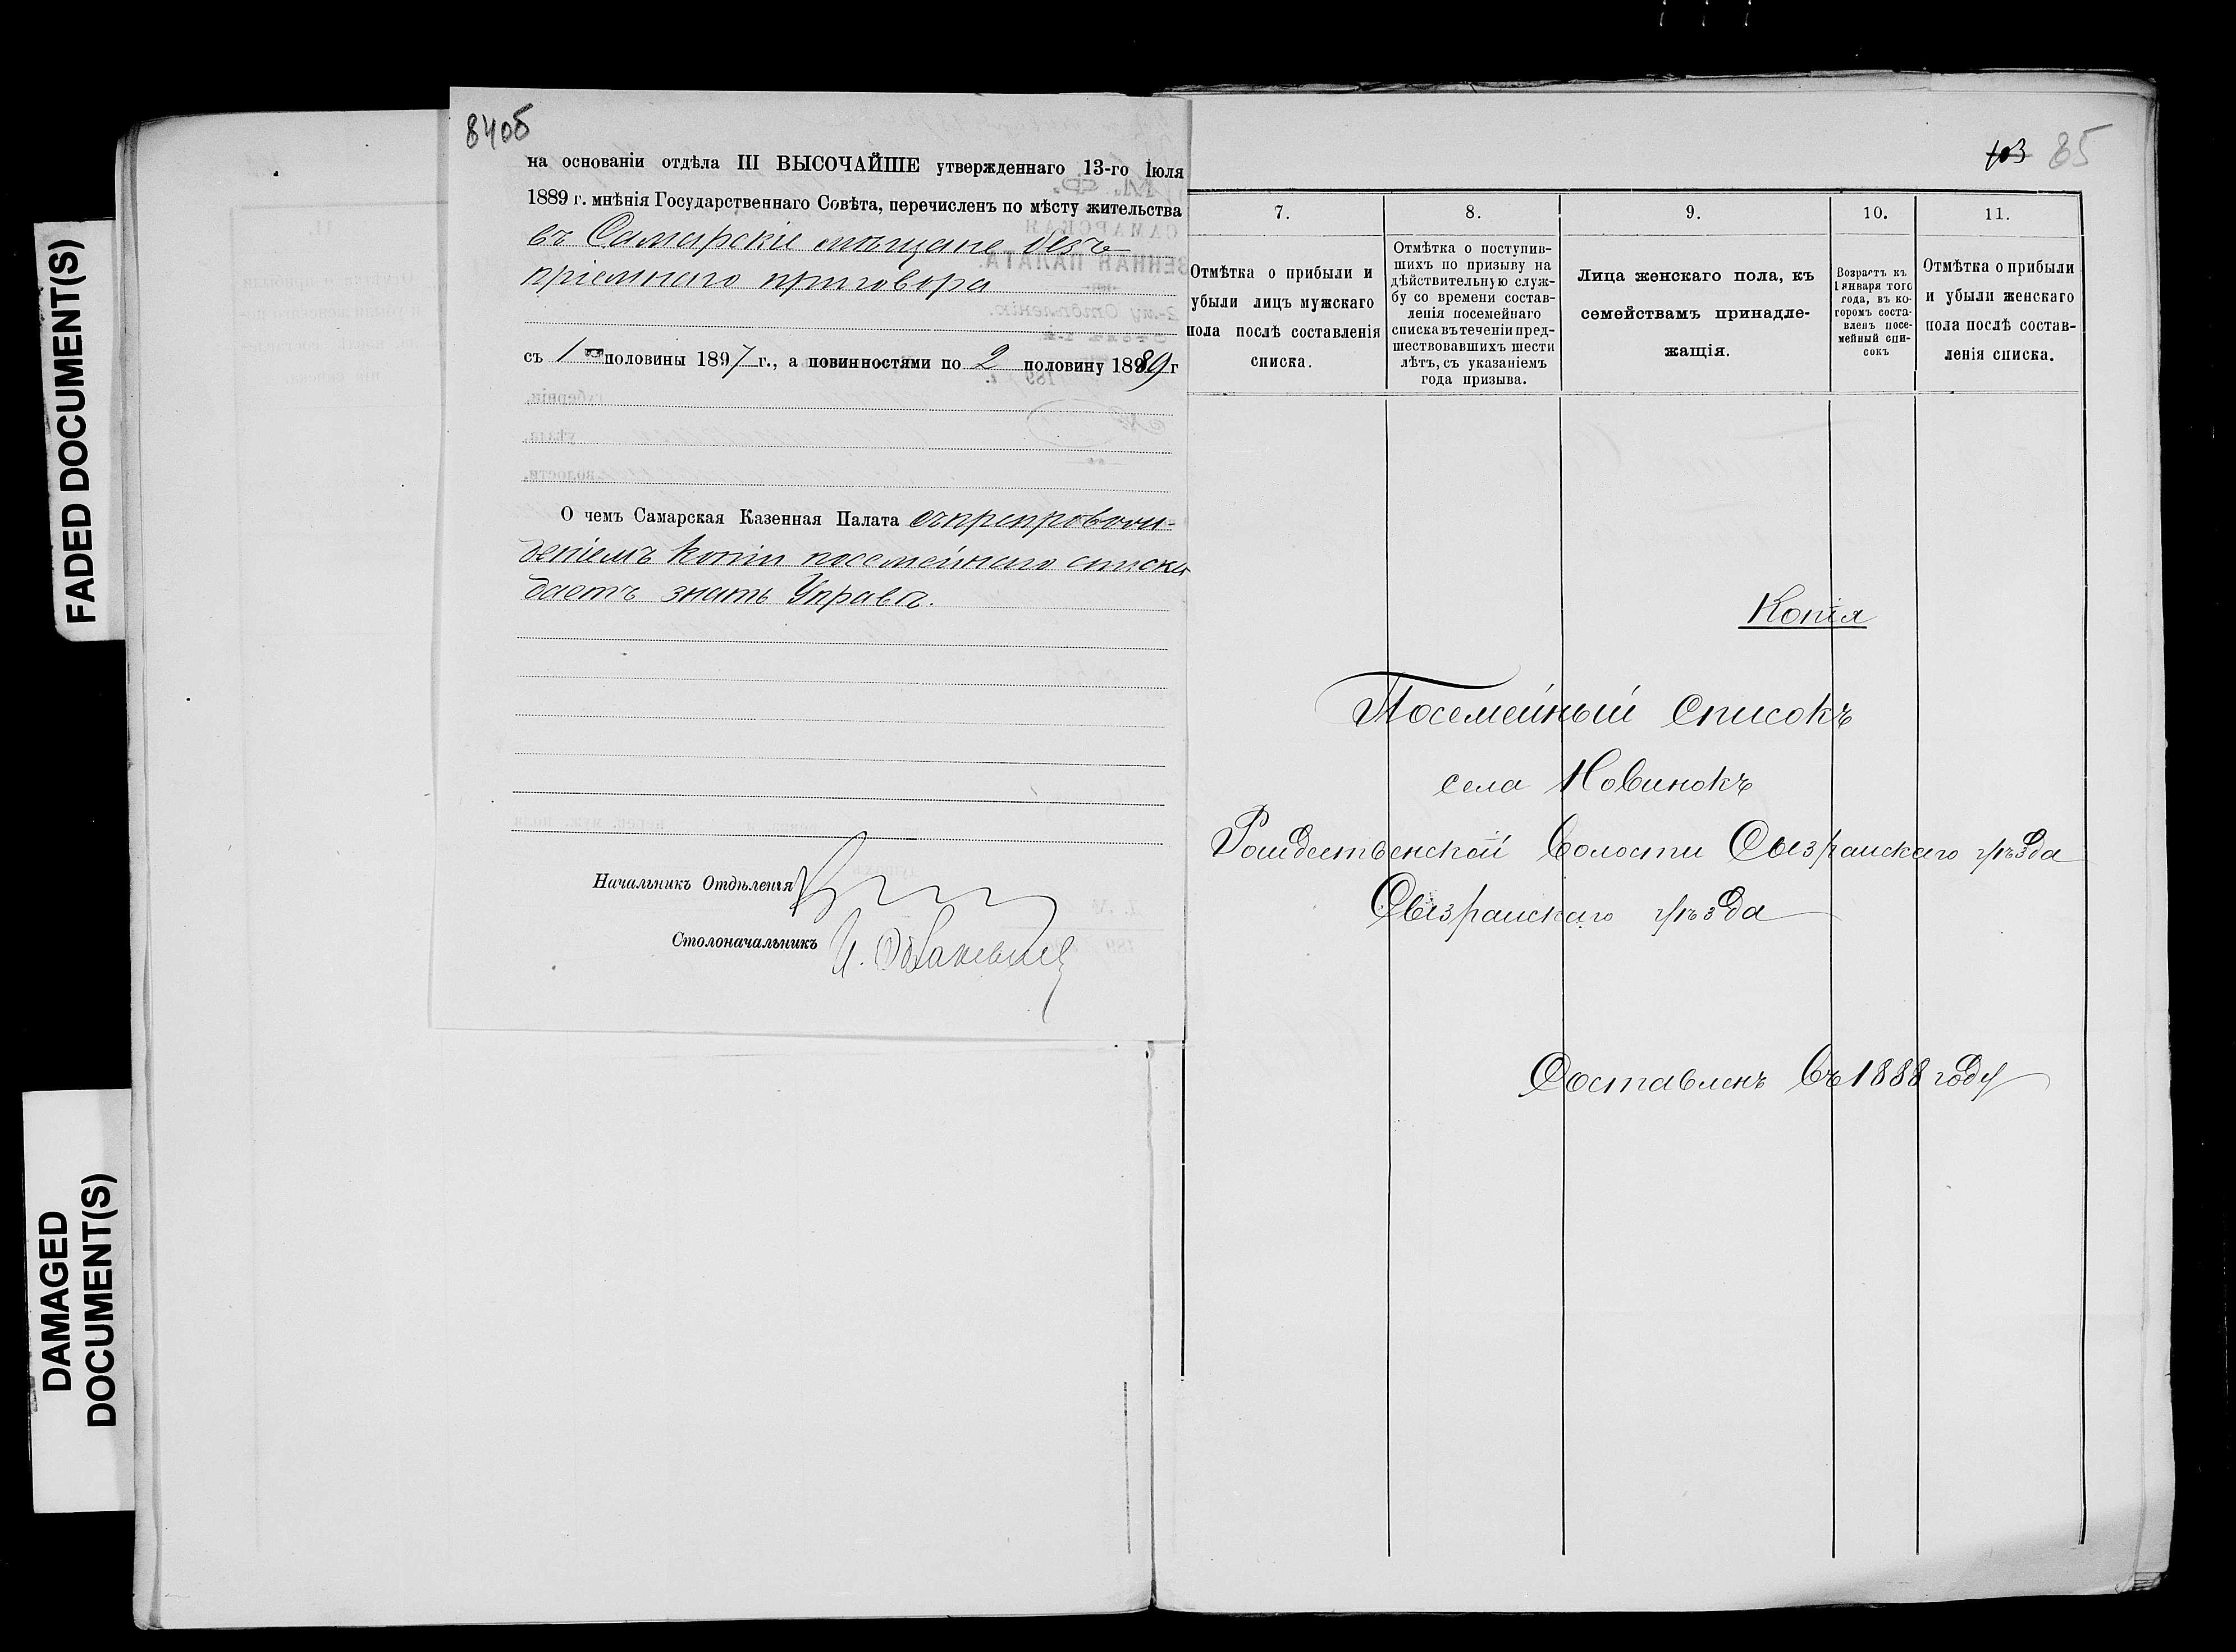 FADED DOCUMENT(S)
DAMAGED
DOCUMENT(S)
84об
на основаніи отдѣла III ВЫСОЧАЙШЕ утвержденнаго 13-го Іюля
1889 г. мнѣнія Государственнаго Совѣта, перечисленъ по мѣсту жительства
въ Самарскіе мѣщане безъ
пріемнаго приговора
съ 1 ой половины 1897 г., а повинностями по 2 половину 1889 г
О чемъ Самарская Казенная Палата съ препровож-
деніемъ копіи посемейнаго списка
даетъ знать Управѣ.
Начальникъ Отдѣленія
Столоначальникъ
103 85
7.
8.
9.
10.
11.
Отмѣтка о прибыли и
убыли лицъ мужскаго
пола послѣ составленія
списка.
Отмѣтка о поступив-
шихъ по призыву на
дѣйствительную служ-
бу со времени состав-
ленія посемейнаго
списка въ теченіи пред-
шествовавшихъ шести
лѣтъ, съ указаніемъ
года призыва.
Лица женскаго пола, къ
семействамъ принадле-
жащія.
Возрастъ къ
1 января того
года, въ ко-
горомъ соста-
вленъ посе-
мейный спи-
сокъ
Отмѣтка о прибыли
и убыли женскаго
пола послѣ состав-
ленія списка.
Копія
Посемейный списокъ
села Новинокъ
Рождественской волости Сызранскаго уѣзда
Сызранскаго уѣзда
Составленъ въ 1888 году